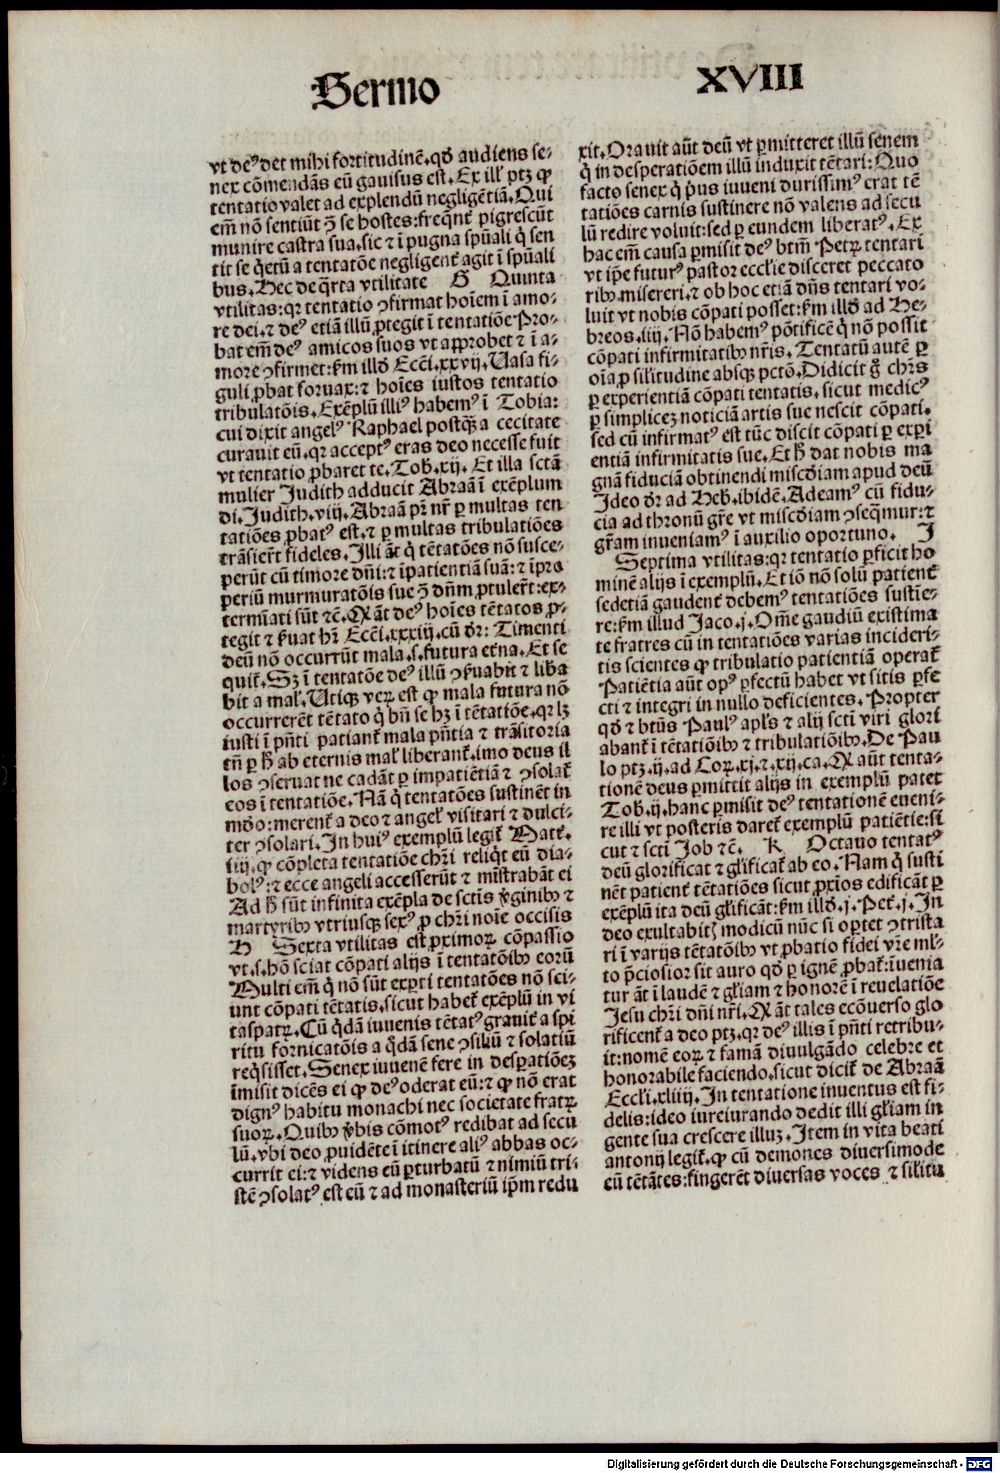 Sermo
XVIII
vt deꝰ det mihi fortitudinē. qđ audiens se-
nex cōmendās eū gauisus est. Ex illꝭ ptꝫ ꝙ
tentatio valet ad explendū negligētiā. Qui
em̄ nō sentiūt ꝯ se hostes: freqn̄t pigrescūt
munire castra sua. sic ⁊ ī pugna spūali q̇ sen
tit se q̇etū a tentatōe negligenꝉ agit ī spūali
bus. Hec de q̈rta vtilitate G Quinta
vtilitas: qꝛ tentatio ꝯfirmat hoīem ī amo-
re dei. ⁊ deꝰ etiā illū ꝓtegit ī tentatiōe Pro-
bat em̄ deꝰ amicos suos vt approbet ⁊ ī a-
more ꝯfirmet: km̄ illđ Ecci. xxvij. Uasa fi-
guli ꝓbat fornax: ⁊ hoīes iustos tentatio
tribulatōis. Exēplū illiꝰ habemꝰ ī Tobia:
cui dixit angelꝰ Raphael postq̄ꝫ a cecitate
curauit eū. qꝛ acceptꝰ eras deo necesse fuit
vt tentatio ꝓbaret te. Tob. xij. Et illa sctā
mulier Judith adducit Abraā ī exēplum
di. Judith. viij. Abraā pr̄ nr̄ ꝑ multas ten
tatiōes ꝓbatꝰ est. ⁊ ꝑ multas tribulatiōes
trāsier̄t fideles. Illi āt q̇ tētatōes nō susce-
perūt cū timore dn̄i: ⁊ īpatientiā suā: ⁊ īpro
periū murmuratōis sue ꝯ dn̄m ꝓtuler̄t: ex-
termīati sūt ⁊c̄. Qꝛ āt deꝰ hoīes tētatos ꝓ-
tegit ⁊ ẜuat hr̄ Ecci. xxxiij. cū dr̄: Timenti
deū nō occurrūt mala. s. futura etna. Et se
quiꝉ. Sꝫ ī tentatōe deꝰ illū ꝯẜuabit ⁊ liba
bit a malꝭ. Utiqꝫ veꝝ est ꝙ mala futura nō
occurrerēt tētato q̇ bn̄ se hꝫ ī tētatiōe. qꝛ lꝫ
iusti ī pn̄ti patianꝉ mala pn̄tia ⁊ trāsitoria
tn̄ ꝑ h̄ ab eternis malꝭ liberanꝉ. imo deus il
los ꝯseruat ne cadāt ꝑ impatiētiā ⁊ ꝯsolaꝉ
eos ī tentatiōe. Nā q̇ tentatōes sustinēt in
mđo: merenꝉ a deo ⁊ angelꝭ visitari ⁊ dulci-
ter ꝯsolari. In huiꝰ exemplū legiꝉ Matꝉ.
iiij. ꝙ cōpleta tentatiōe chr̄i reliq̇t eū dia-
bolꝰ: ⁊ ecce angeli accesserūt ⁊ mīstrabāt ei
Ad h̄ sūt infinita exēpla de sctis v̄giniƀꝫ ⁊
martyriƀꝫ vtriusqꝫ sexꝰ ꝓ chr̄i noīe occisis
H Sexta vtilitas est ꝓximoꝝ cōpassio
vt. s. hō sciat cōpati alijs ī tentatōiƀꝫ eorū
Multi em̄ q̇ nō sūt exꝑti tentatōes nō sci-
unt cōpati tētatis. sicut habeꝉ exēplū in vi
taspatꝝ. Cū q̇dā iuuenis tētatꝰ grauiꝉ a spi
ritu fornicatōis a q̇dā sene ꝯsiliū ⁊ solatiū
req̇sisset. Senex iuuenē fere in desꝑatiōeꝫ
īmisit dicēs ei ꝙ deꝰ oderat eū: ⁊ ꝙ nō erat
dignꝰ habitu monachi nec societate fratꝝ
suoꝝ. Quiƀꝫ v̄bis cōmotꝰ redibat ad secu
lū. vbi deo ꝓuidēte ī itinere aliꝰ abbas oc-
currit ei: ⁊ videns eū ꝑturbatū ⁊ nimiū tri-
stē ꝯsolatꝰ est eū ⁊ ad monasteriū ip̄m redu
xit. Orauit aūt deū vt ꝑmitteret illū senem
q̇ in desperatiōem illū induxit tētari: Quo
facto senex q̇ pͥus iuueni durissimꝰ erat tē
tatiōes carnis sustinere nō valens ad secu
lū redire voluit: sed ꝑ eundem liberatꝰ. Ex
hac em̄ causa ꝑmisit deꝰ btm̄ Petꝝ tentari
vt ip̄e futurꝰ pastor eccl̄ie disceret peccato
riƀꝫ misereri. ⁊ ob hoc etiā dn̄s tentari vo-
luit vt nobis cōpati posset: km̄ illđ ad He-
breos. iiij. Nō habemꝰ pōtificē q̇ nō possit
cōpati infirmitatiƀꝫ nr̄is. Tentatū autē ꝑ
oīa ꝓ silitudine absqꝫ pctō. Didicit gͦ chr̄s
ꝑ experientiā cōpati tentatis. sicut medicꝰ
ꝑ simplicez noticiā artis sue nescit cōpati.
sed cū infirmatꝰ est tūc discit cōpati ꝑ exꝑi
entiā infirmitatis sue. Et h̄ dat nobis ma
gnā fiduciā obtinendi miscđiam apud deū
Ideo dr̄ ad Heb. ibidē. Adeamꝰ cū fidu-
cia ad thronū gr̄e vt miscđiam ꝯseq̄mur: ⁊
gr̄am inueniamꝰ ī auxilio oportuno. I
Septima vtilitas: qꝛ tentatio ꝑficit ho
minē alijs ī exemplū. Et iō nō solū patienꝉ
sedetiā gaudenꝉ debemꝰ tentatiōes sustīe-
re: km̄ illud Jaco. j. Om̄e gaudiū existima
te fratres cū in tentatiōes varias incideri-
tis scientes ꝙ tribulatio patientiā operaꝉ
Patiētia aūt opꝰ ꝑfectū habet vt sitis ꝑfe
cti ⁊ integri in nullo deficientes. Propter
qđ ⁊ btūs Paulꝰ apl̄s ⁊ alij scti viri glori
abanꝉ ī tētatiōiƀꝫ ⁊ tribulatiōiƀꝫ. De Pau
lo ptꝫ. ij. ad Coꝝ. xj. ⁊. xij. ca. Qꝛ aūt tenta-
tionē deus ꝑmittit alijs in exemplū patet
Tob. ij. hanc ꝑmisit deꝰ tentationē eueni-
re illi vt posteris dareꝉ exemplū patiētie: si
cut ⁊ scti Job ⁊c̄. K Octauo tentatꝰ
deū glorificat ⁊ gl̄ificaꝉ ab eo. Nam q̇ susti
nēt patienꝉ tētatiōes sicut ꝓxīos edificāt ꝑ
exēplū ita deū gl̄ificāt: km̄ illđ. j. Peꝉ. j. In
deo exultabitꝭ modicū nūc si oꝑtet ꝯtrista
ri ī varijs tētatōiƀꝫ vt ꝓbatio fidei vr̄e ml̄-
to p̄ciosior sit auro qđ ꝑ ignē ꝓbaꝉ: īuenia
tur āt ī laudē ⁊ gl̄iam ⁊ honorē ī reuelatiōe
Jesu chr̄i dn̄i nr̄i. Qꝛ āt tales ecōuerso glo
rificenꝉ a deo ptꝫ. qꝛ deꝰ illis ī pn̄ti retribu-
it: nomē eoꝝ ⁊ famā diuulgādo celebre et
honorabile faciendo. sicut diciꝉ de Abraā
Eccl̄i. xliiij. In tentatione inuentus est fi-
delis: ideo iureiurando dedit illi gl̄iam in
gente sua crescere illuꝫ. Item in vita beati
antonij legiꝉ. ꝙ cū demones diuersimode
eū tētātes: fingerēt diuersas voces ⁊ silitu
Digitalisierung gefördert durch die Deutsche Forschungsgemeinschaft - DFG